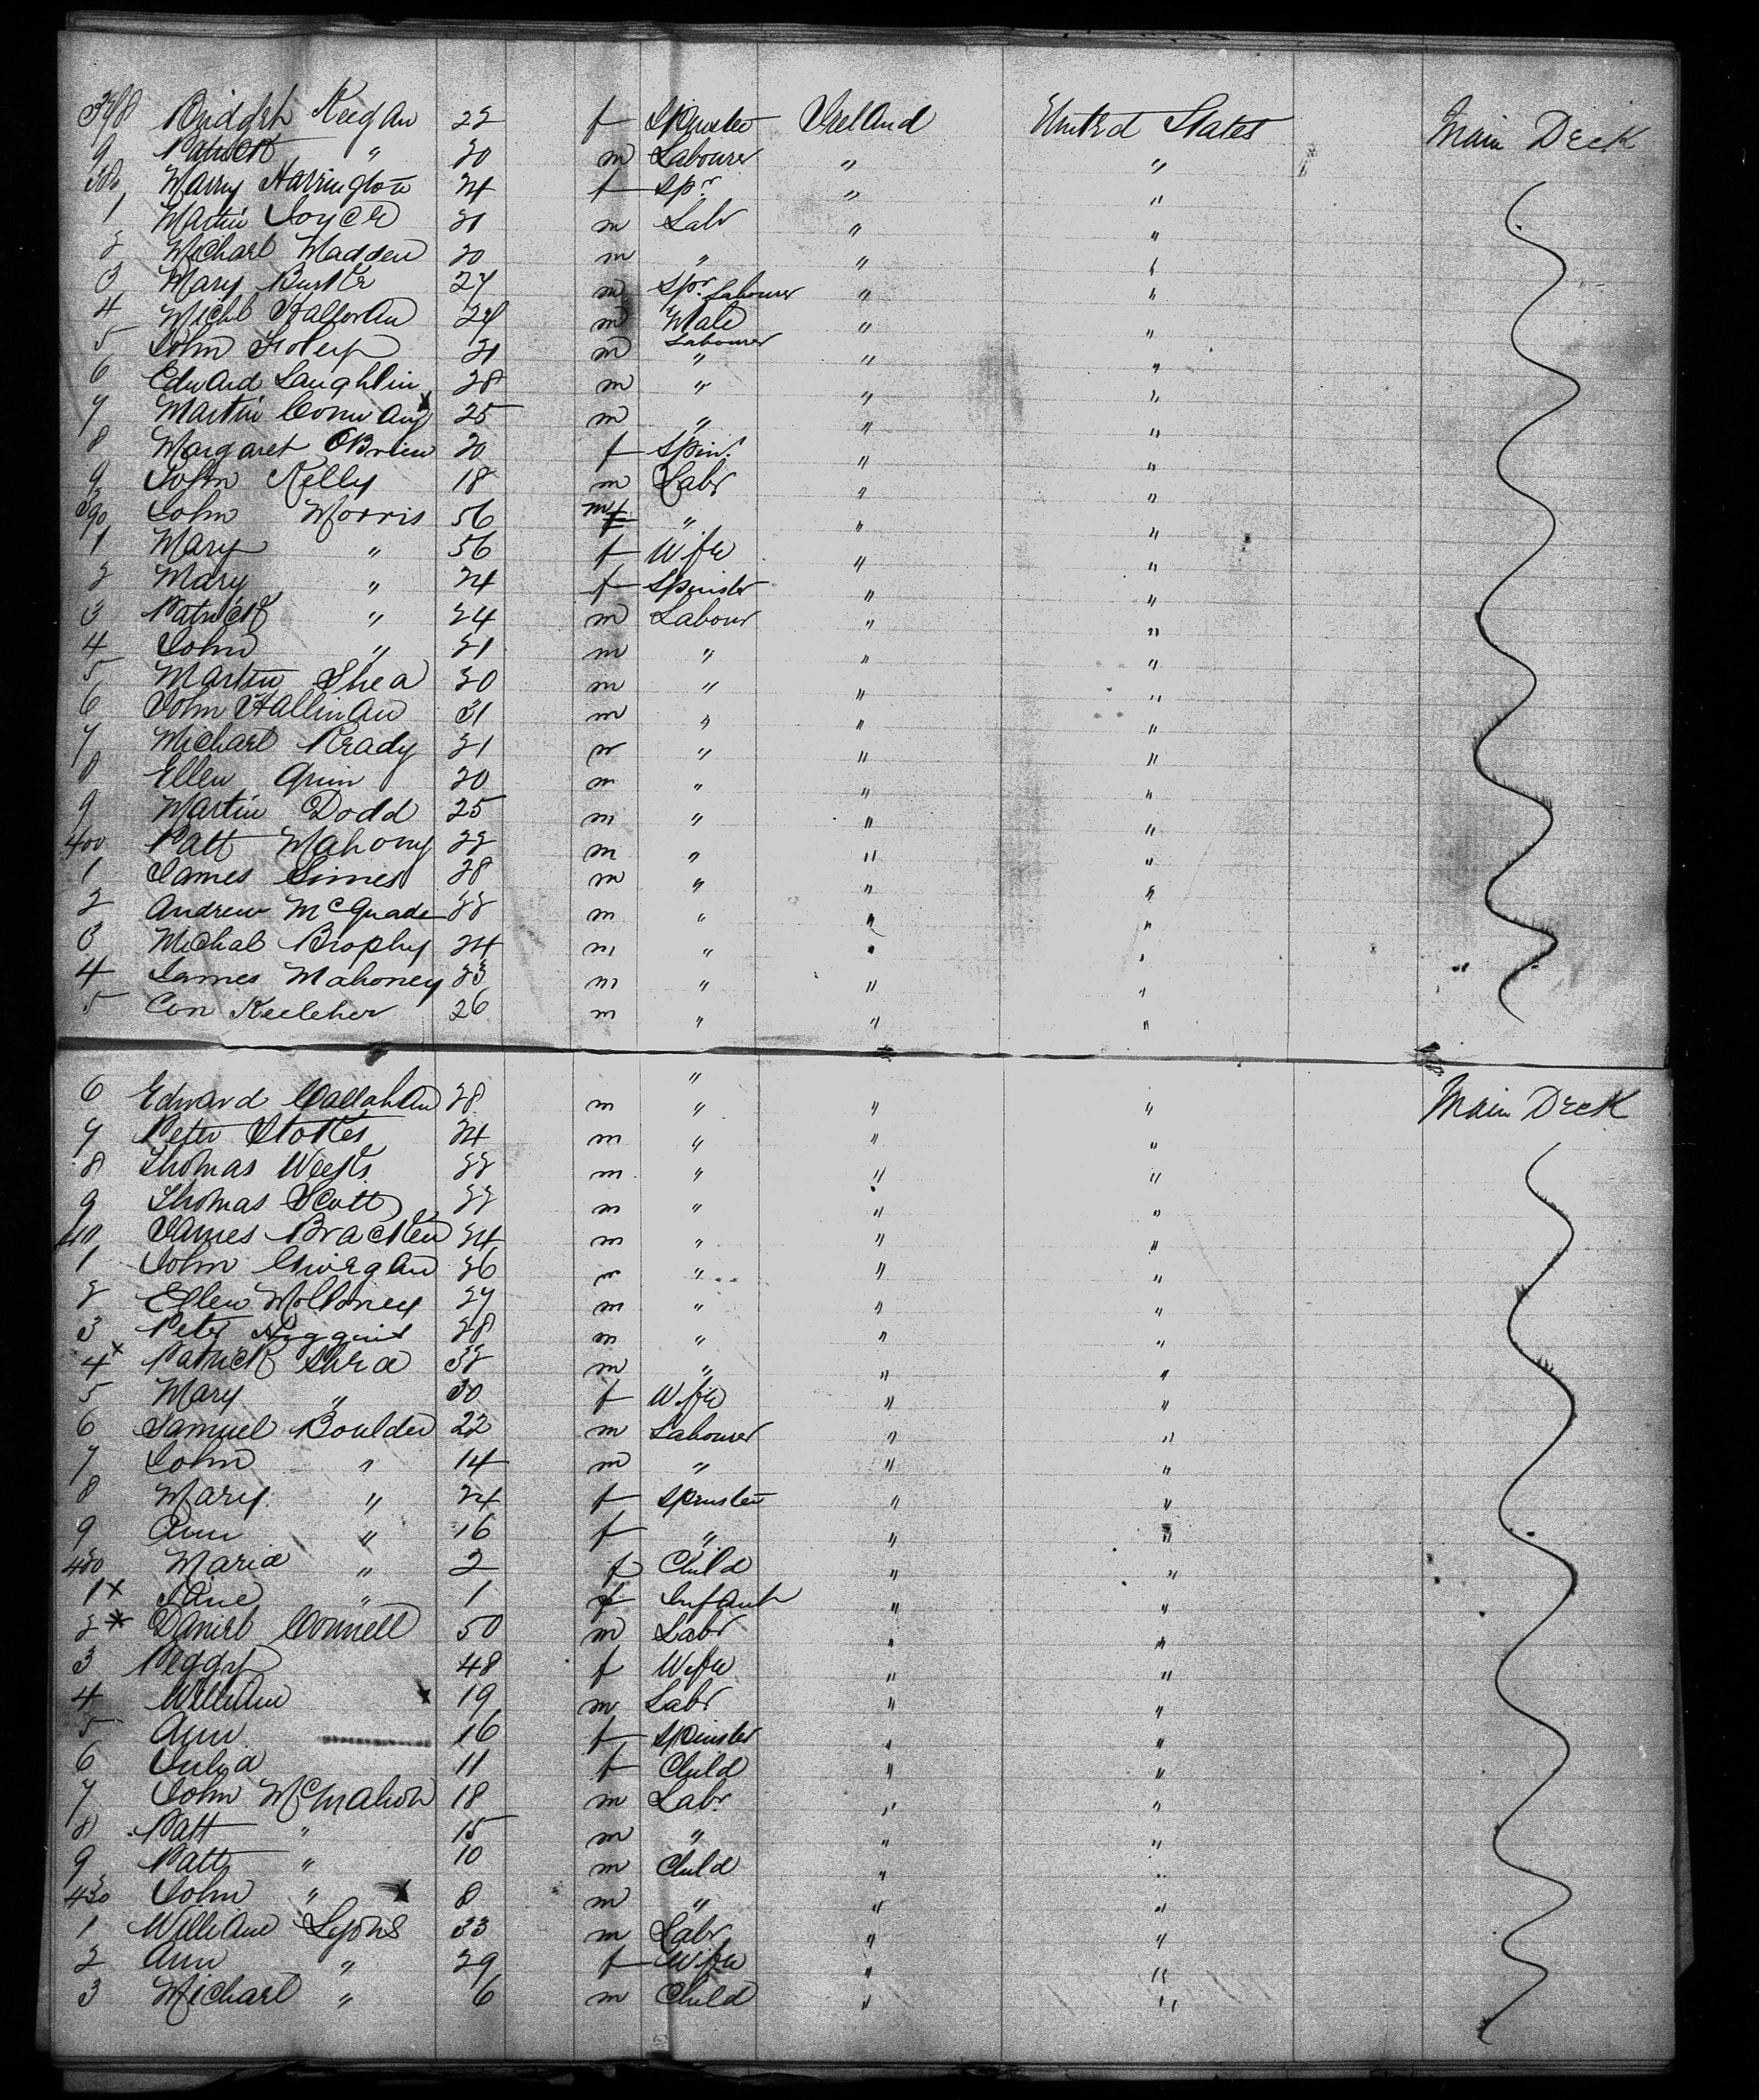 378 Bridget Keegan 22 f Spinster Ireland United States Main Deck
9 Patrick " 20 m Labourer " "
380 Marry Harrington 24 f Spr " "
1 Martin Joyce 21 m Labr " "
2 Michael Madden 20 m " " "
3 Mary Burke 27 m Spr Labourer " "
4 Michl Halloran 24 m Male " "
5 John Foley 21 m Labourer " " "
6 Edward Laughlin 28 m " " "
7 Martin Conway 25 m " " "
8 Margaret OBrien 20 f Spin. " "
9 John Kelly 18 m Labr " "
390 John Morris 56 m " " "
1 Mary " 56 f Wife " "
2 Mary " 24 f Spinster " "
3 Patrick " 24 m Labour " "
4 John " 21 m " " "
5 Martin Shea 20 m " " "
6 John Hallinan 31 m " " "
7 Michael Ready 21 m " " "
8 Ellen Quin 20 m " " "
9 Martin Dodd 25 m " " "
400 Patt Mahony 22 m " " "
1 James Simes 28 m " " "
2 Andrew McQuade 22 m " " "
3 Michal Brophy 24 m " " "
4 James Mahoney 23 m " " "
5 Con Keeleher 26 m " " "
"
6 Edward Callahan 28 m " " " Main Deck
7 Peter Stokes 24 m " " "
8 Thomas Weeks 22 m " " "
9 Thomas Scott 22 m " " "
410 James Bracken 24 m " " "
1 John 26 m " " "
2 Ellen Molloney 27 m " " "
3 Peter 28 m " " "
4 x Patrick Shea 32 m " " "
5 Mary " 30 f Wife " "
6 Samuel Boulder 22 m Labourer " "
7 John " 14 m " " "
8 Mary " 24 f Spinster " "
9 Ann " 16 f " " "
420 Maria " 2 f Child " "
1 x Jane " 1 f Infant " "
2 * Daniel Connell 50 m Labr " "
3 Peggy 48 f Wife " "
4 William 19 m Labr " "
5 Ann 16 f Spinster " "
6 Julia 11 f Child " "
7 John McMahon 18 m Labr " "
8 Patt " 15 m " " "
9 Patt " 10 m Child " "
430 John " 8 m " " "
1 William Lyons 33 m Labr " "
2 Ann " 29 f Wife " "
3 Michael " 6 m Child " "